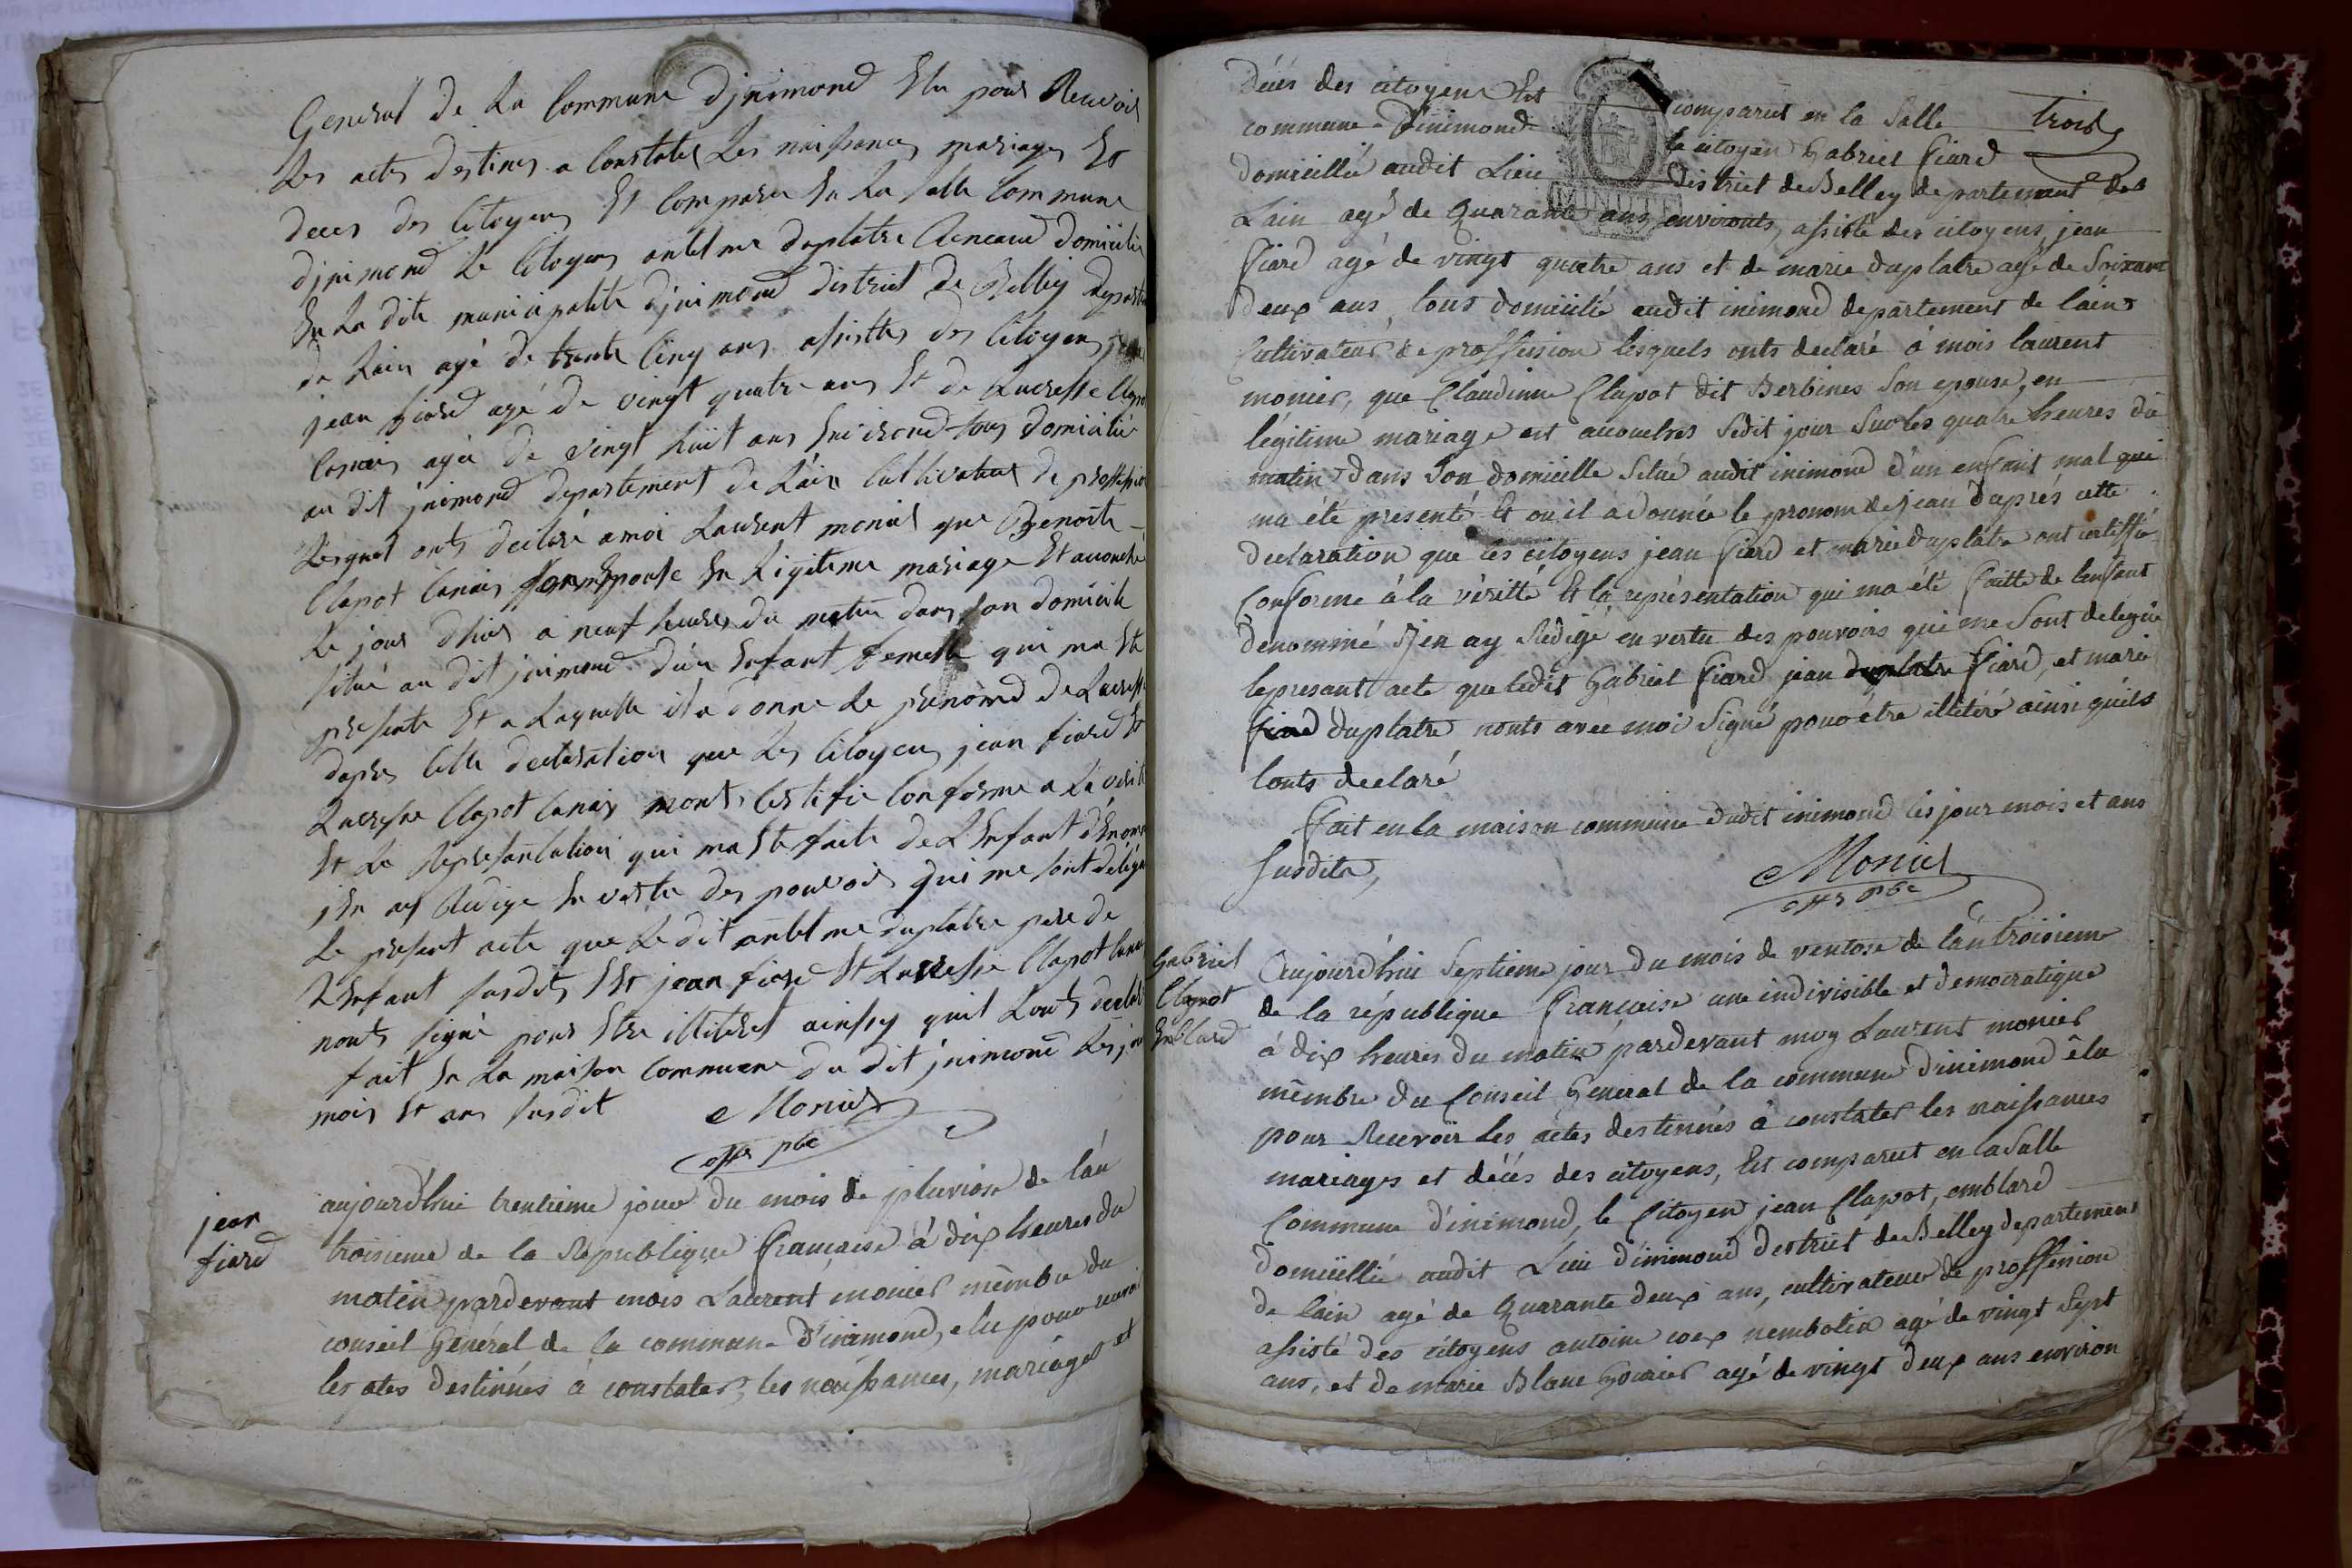 General de La Commune Djnimond Elu pour Recevoir
Les actes destines a Constater Les naissances mariages Et
deces des Citoyens Et Comparu En La salle Commune
djnimond Le Citoyen antelme duplatre domicilie
En La dite municipalite djnimond district de Belley departem
de Lain agé de trente Cinq ans assistes des Citoyens
jean fiard agé de vingt quatre ans Et de Lucresse Clapot
Canais agée de vingt huit ans Environd tous domicilié
au dit jnimond departement de Lain Cultivateur de proffession
Lesquel onts declaré a moi Laurent monier que Benoite
Clapot Canais son Epouse En Ligitime mariage Et accouché
Le jour dhier a neuf heures du matin dans son domicile
situé au dit jnimond d'un Enfant femelle qui ma Ete
presente Et a Laquelle il a donne Le prenomd de Lucresse
dapres Cette declaration que Les Citoyens jean fiard Et
Lucresse Clapot Canais monts Certifie Conforme a La verité
Et La Representation qui ma Ete faite de L'Enfant dEnome
jEn ay Redige En vertu des pouvoirs qui me sont deleguee
Le present acte que Le dit antelme duplatre pere de
LEnfant susdits Et jean fiard Et Lucresse Clapot Canais
nonts signé pour Etre illiteret ainssy quil Lonts declaré
fait En La maison Commune du dit jnimond Les jour
mois Et ans susdit Monier
offr pbc
jean
fiard
aujourd'hui trentieme jour du mois de pluviose de l'an
troisieme de la Republique francaise à dix heures du
matin pardevant mois Laurent monier membre du
conseil Général de la commune d'inimond, elu pour recevoir
les actes destinnés à constater, les naissances, mariages et
décés des citoyens Est comparut en la Salle trois
commune d'inimond le citoyen Gabriel fiard
domicillié audit Lieu District de Belley departement de
Lain agé de quarante ans environts, assisté des citoyens jean
MINUTE
fiard agé de vingt quatre ans et de marie duplatre agé de Soixant
deux ans, tous domicilié audit inimond departement de lain
Cultivateur de proffession lesquels onts declaré à mois laurent
monier, que Claudinne Clapot dit Berbines Son epouse, en
légitime mariage est accouchés Sedit jour Sur les quatre heures du
matin dans Son domicille Situé audit inimond d'un enfant mal qui
ma été presenté Et ou il a donnée le pronom de jean d'aprés cette
declaration que ces citoyens jean fiard et marie duplatre ont certiffié
Conforme à la veritté Et la représentation qui ma été faitte de lenfant
denommé Jen ay Redigé en vertu des pouvoirs qui me Sont delegué
le presant acte que ledit Gabriel fiard jean duplatre fiard, et marie
fiard duplatre nonts avec moi Signé pour être illitéré ainsi quils
lonts declaré
fait en la maison commune dudit inimond les jour mois et ans
Susdits, Monier
offr pbc
Gabriel
Clapot
Emblard
Aujourd'hui Septieme jour du mois de ventose de l'an troisieme
de la république francaise une indivisible et democratique
à dix heures du matin pardevant moy Laurent monier
mêmbre du Conseil Général de la commune d'inimond êlu
pour Recevoir les actes destinnés à constater les naissances
mariages et décés des citoyens, Est comparut en la Salle
Commune d'inimond, le Citoyen jean Clapot, emblard
domicillié audit Lieu d'inimond destriit de Belley departement
de lain agé de quarante deux ans, cultivateur de proffession
assisté des citoyens antoine coex nembotin agé de vingt Sept
ans, et de marie Blanc agé de vingt deux ans environ